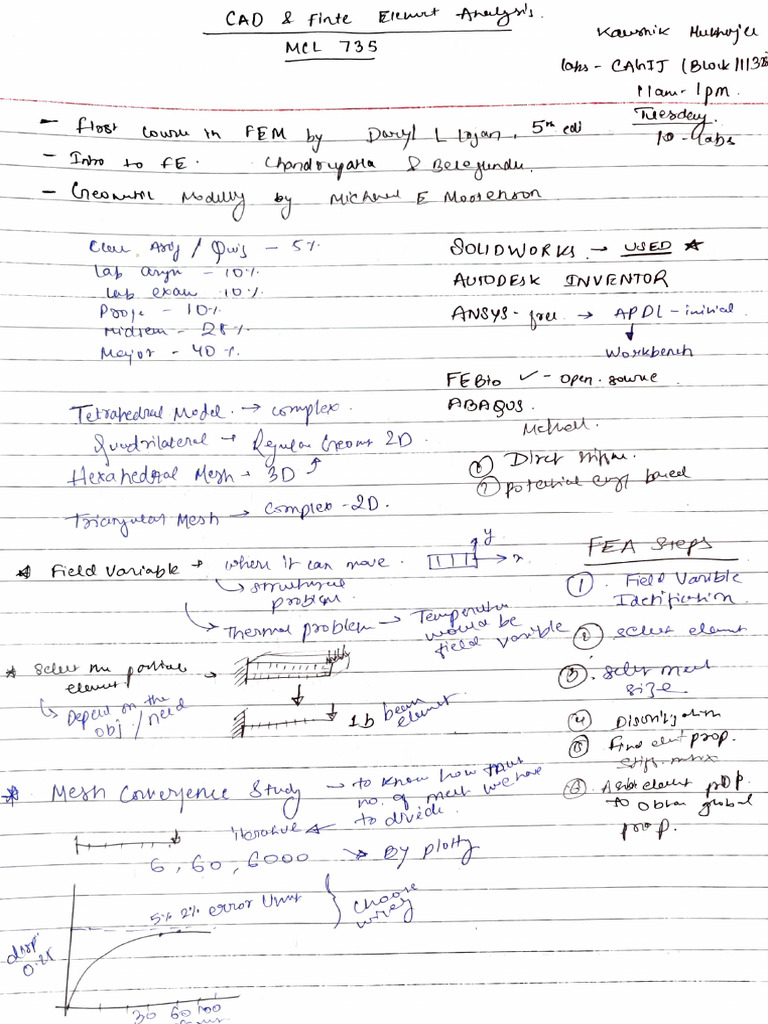 CAD & Finte Element Analysis.
MCL 735
Kaushik Mukherjee
labs - CAGIJ (Block III
11am - 1pm.
Tuesday.
10 - labs
- First course in FEM by Daryl L Logan, 5th edi
- Intro to FE. Chandrupatla & Belegundu.
- Geometric Modelling by Michael E Mortenson
/ Quis - 5%
Lab - 10%
Lab exam 10%.
Proje - 10%
Midsem - 25%
Major - 40%.
SOLIDWORKS → USED ★
AUTODESK INVENTOR
ANSYS - free → APDL - initial
Workbench
FEBio ✓ - open source
ABAQUS.
Tetrahedral Model → complex.
Quadrilateral → Regular Geomt 2D.
Hexahedral Mesh - 3D
Triangular Mesh → Complex - 2D.
Method.
Direct
potential based
* Field Variable → where it can move.
y
x
→ structural
problem.
→ Thermal problem → Temperature
would be
field variable
* Select the
element.
→ Depend on the
obj / need
1D beam
element.
* Mesh Convergence Study → to know how
no. of we have
to divide.
iterative
6, 60, 6000 → By plotting
5% 2% error limit
choose
wisely
disp.
30 60 100
FEA Steps
① Field Variable
Identification
② Select element
③ Select mesh
size
④ Discretization
⑤ Find prop.
Stiff. matrix
⑥ element prop.
to obtain global
prop.